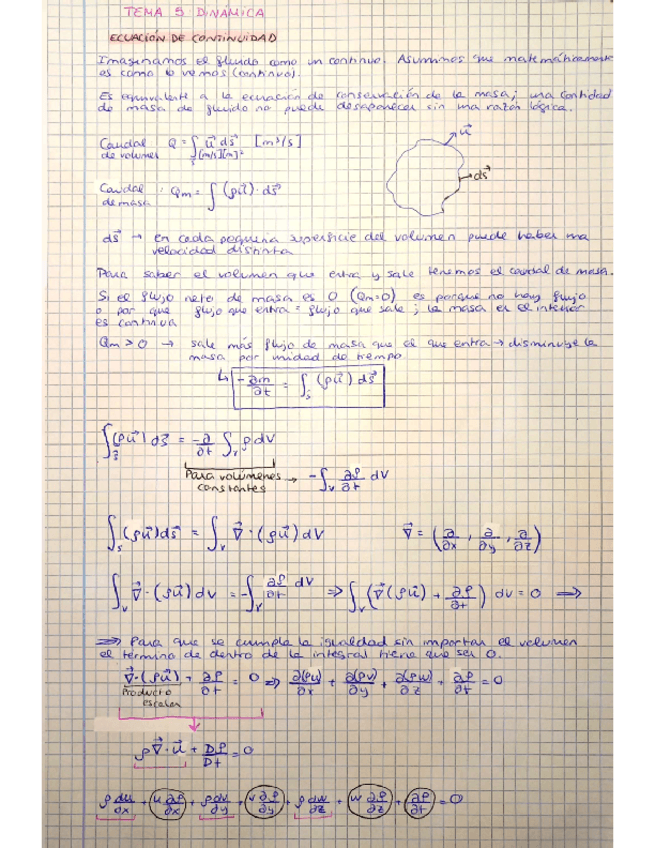 TEMA 5 DINÁMICA
ECUACIÓN DE CONTINUIDAD
Imaginamos el fluido como un continuo. Asumimos que matemáticamente
es como lo vemos (continuo).
Es equivalente a la ecuación de conservación de la masa; una cantidad
de masa de fluido no puede desaparecer sin una razón lógica.
Caudal de volumen Q = ∫ₛ u⃗ ds⃗ [m³/s]
[m/s][m]²
u⃗
ds⃗
Caudal de masa : Qm = ∫ (ρu⃗)· ds⃗
ds⃗ → en cada pequeña superficie del volumen puede haber una
velocidad distinta
Para saber el volumen que entra y sale tenemos el caudal de masa.
Si el flujo neto de masa es 0 (Qm=0) es porque no hay flujo
o por que flujo que entra = flujo que sale ; la masa en el interior
es continua
Qm > 0 → sale más flujo de masa que el que entra → disminuye la
masa por unidad de tiempo
↳ -∂m/∂t = ∫ₛ (ρu⃗) ds⃗
∫ₛ (ρu⃗) ds⃗ = -∂/∂t ∫ᵥ ρ dV
Para volúmenes constantes → -∫ᵥ ∂ρ/∂t dV
∫ₛ (ρu⃗) ds⃗ = ∫ᵥ ∇⃗ · (ρu⃗) dV ∇⃗ = (∂/∂x , ∂/∂y , ∂/∂z)
∫ᵥ ∇⃗ · (ρu⃗) dv = -∫ᵥ ∂ρ/∂t dV ⇒ ∫ᵥ (∇⃗(ρu⃗) + ∂ρ/∂t) dv = 0 ⇒
⇒ Para que se cumpla la igualdad sin importar el volumen
el término de dentro de la integral tiene que ser 0.
∇⃗ · (ρu⃗) + ∂ρ/∂t = 0 ⇒ ∂(ρu)/∂x + ∂(ρv)/∂y + ∂(ρw)/∂z + ∂ρ/∂t = 0
Producto
escalar
ρ∇⃗ · u⃗ + Dρ/Dt = 0
ρ du/∂x + u ∂ρ/∂x + ρ dv/∂y + v ∂ρ/∂y + ρ dw/∂z + w ∂ρ/∂z + ∂ρ/∂t = 0